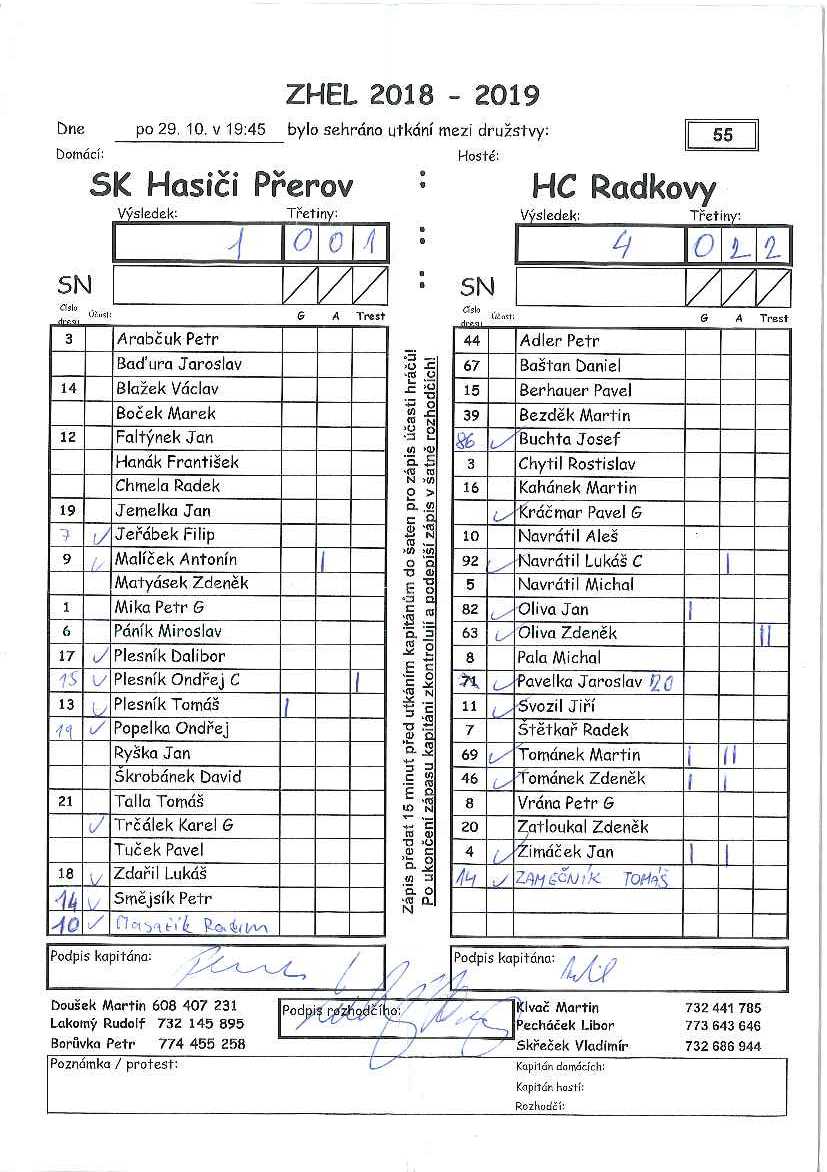 ZHEL 2018 - 2019
Dne po 29. 10. v 19:45 bylo sehráno utkání mezi družstvy: 55
Domácí: Hosté:
SK Hasiči Přerov : HC Radkovy
Výsledek: Třetiny: Výsledek: Třetiny:
1 0 0 1 : 4 0 2 2
SN : SN
Číslo dresu Účast: G A Trest Číslo dresu Účast: G A Trest
3 Arabčuk Petr
Baďura Jaroslav
14 Blažek Václav
Boček Marek
12 Faltýnek Jan
Hanák František
Chmela Radek
19 Jemelka Jan
7 ✓ Jeřábek Filip
9 ✓ Malíček Antonín |
Matyásek Zdeněk
1 Mika Petr G
6 Páník Miroslav
17 ✓ Plesník Dalibor
15 ✓ Plesník Ondřej C |
13 ✓ Plesník Tomáš |
19 ✓ Popelka Ondřej
Ryška Jan
Škrobánek David
21 Talla Tomáš
✓ Trčálek Karel G
Tuček Pavel
18 ✓ Zdařil Lukáš
14 ✓ Smějsík Petr
10 ✓ Radim
Zápis předat 15 minut před utkáním kapitánům do šaten pro zápis účasti hráčů!
Po ukončení zápasu kapitáni zkontrolují a podepíší zápis v šatně rozhodčích!
44 Adler Petr
67 Baštan Daniel
15 Berhauer Pavel
39 Bezděk Martin
86 ✓ Buchta Josef
3 Chytil Rostislav
16 Kahánek Martin
✓ Kráčmar Pavel G
10 Navrátil Aleš
92 ✓ Navrátil Lukáš C |
5 Navrátil Michal
82 ✓ Oliva Jan |
63 ✓ Oliva Zdeněk ||
8 Pala Michal
71 ✓ Pavelka Jaroslav 20
11 ✓ Svozil Jiří
7 Štětkař Radek
69 ✓ Tománek Martin | ||
46 ✓ Tománek Zdeněk | |
8 Vrána Petr G
20 Zatloukal Zdeněk
4 ✓ Zimáček Jan | |
14 ✓ ZÁMEČNÍK TOMÁŠ
Podpis kapitána: Podpis kapitána:
Doušek Martin 608 407 231
Lakomý Rudolf 732 145 895
Borůvka Petr 774 455 258
Podpis rozhodčího:
Kivač Martin 732 441 785
Pecháček Libor 773 643 646
Skřeček Vladimír 732 686 944
Poznámka / protest:
Kapitán domácích:
Kapitán hostí:
Rozhodčí: